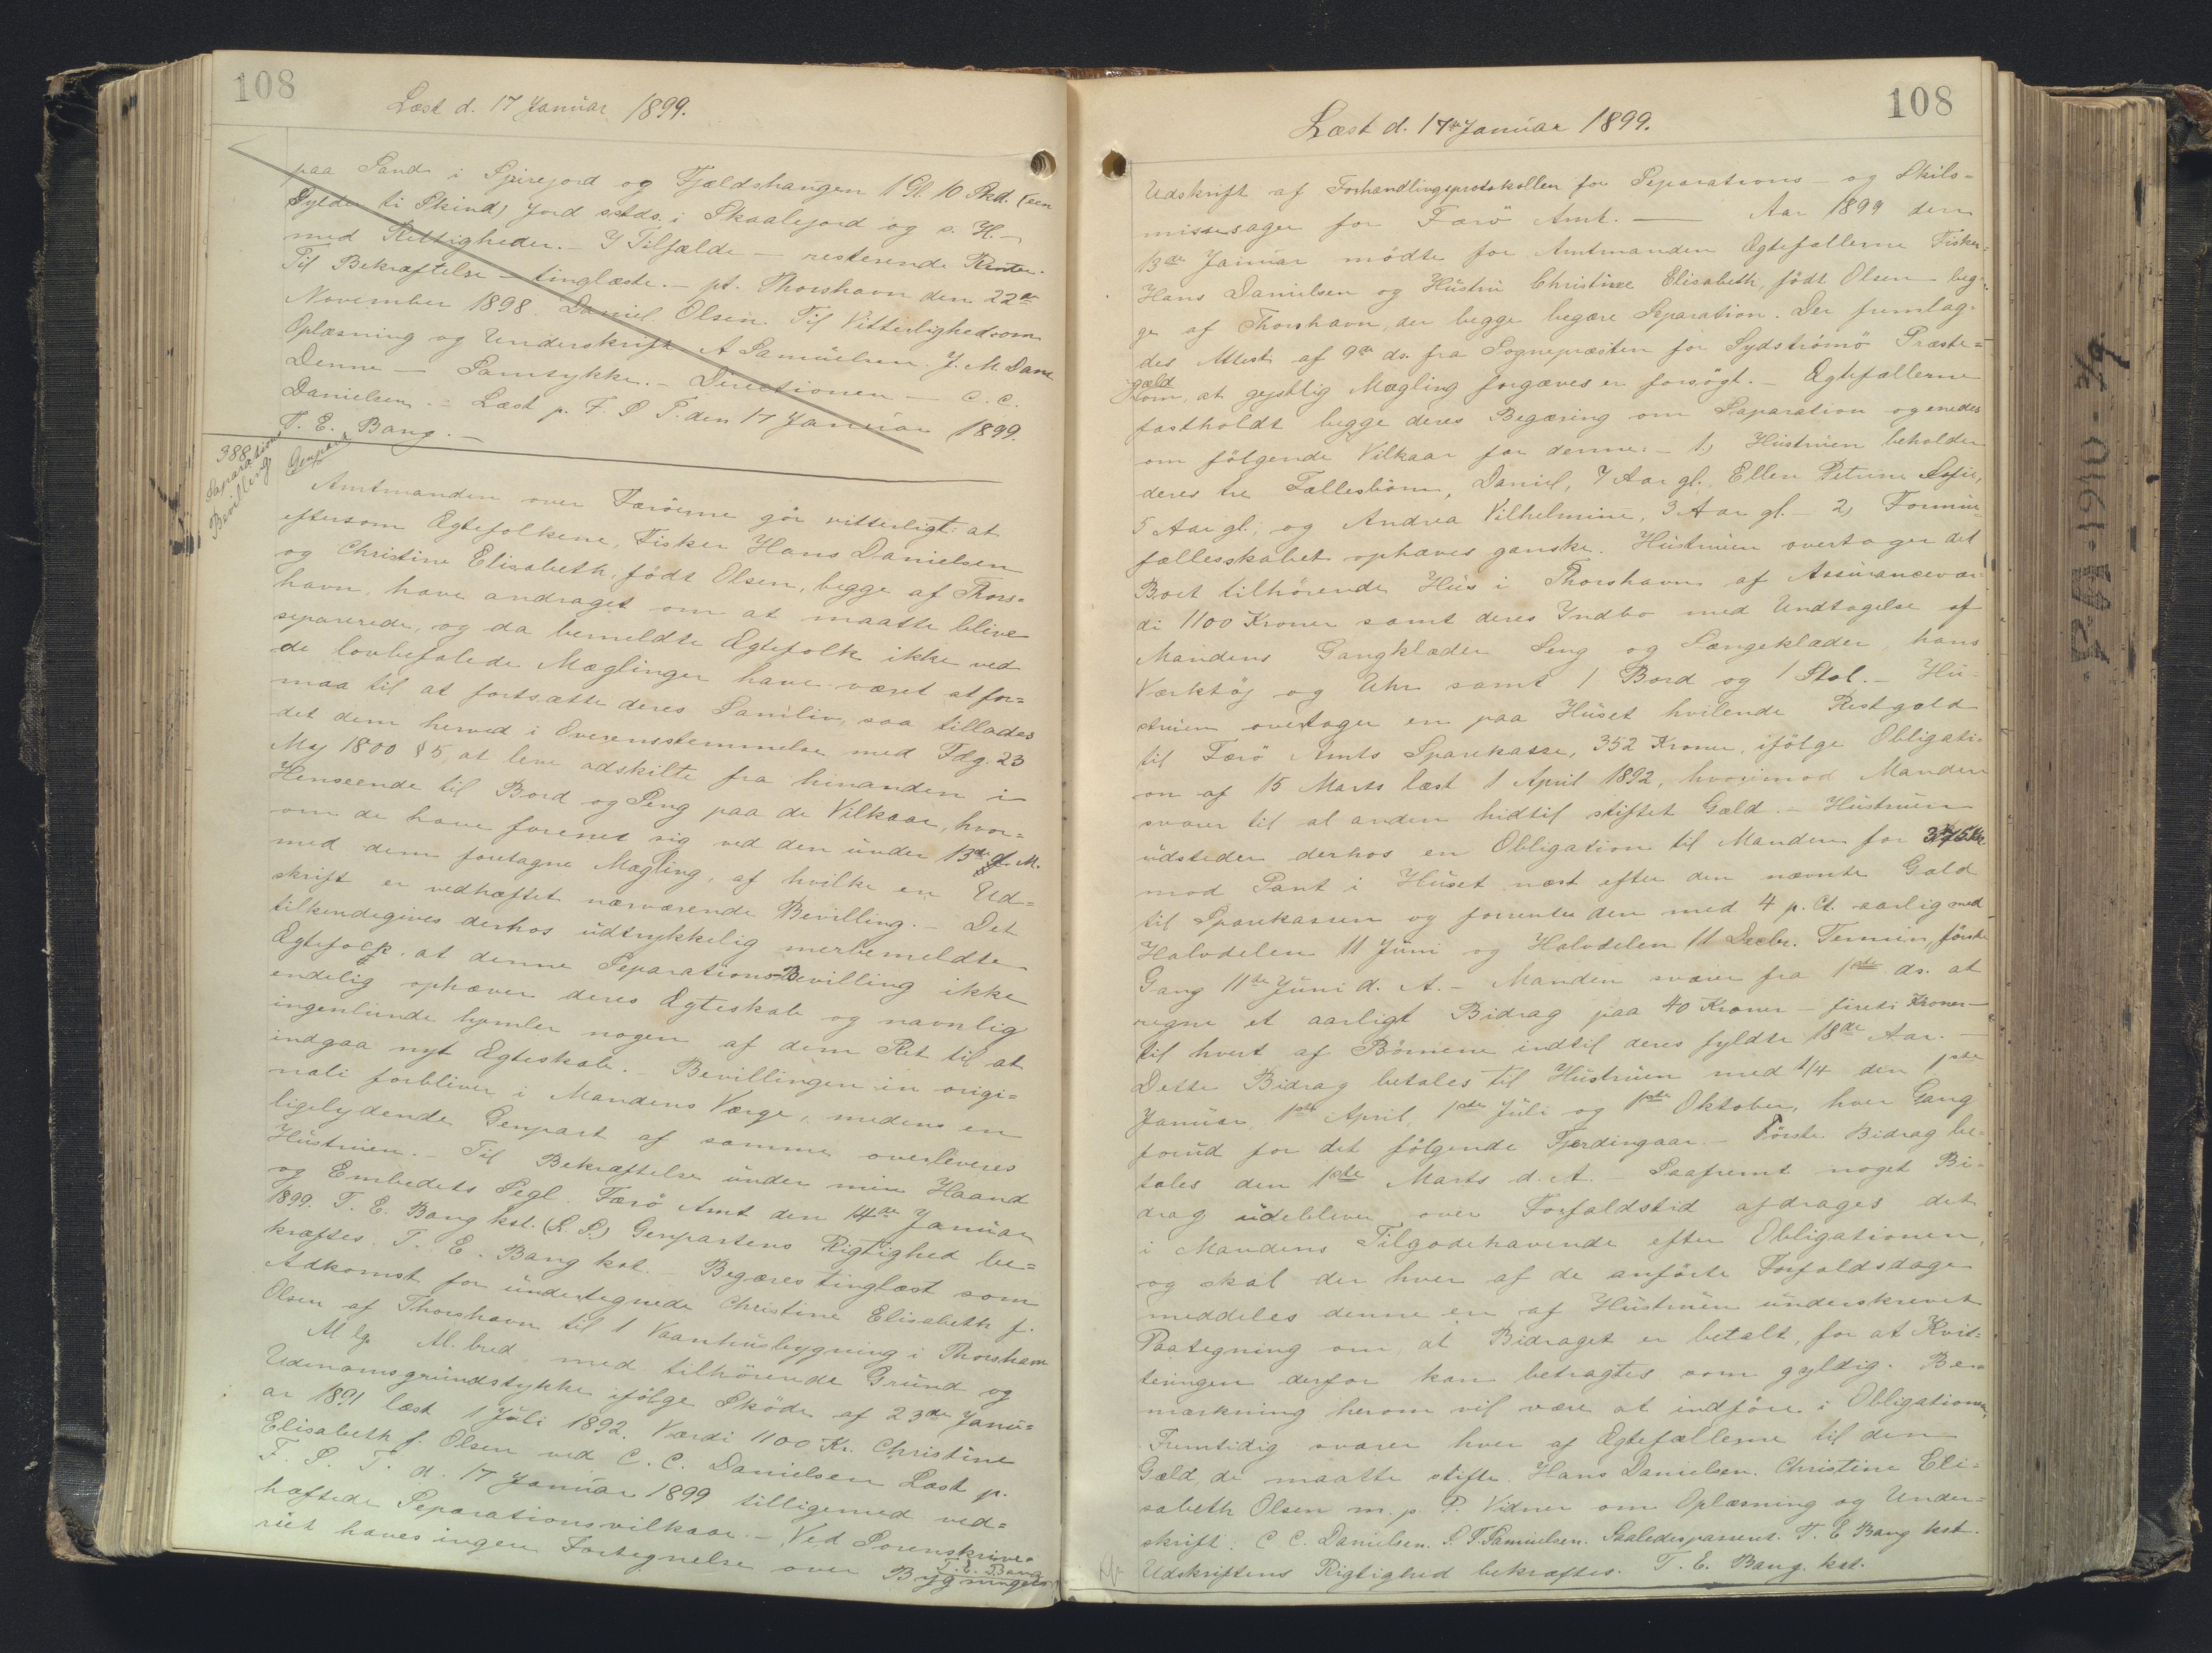 108
Læst d. 17 Januar 1899.
paa Sand i Spirejord og Fjældshaugen 1 Gl. 10 Skd. (een
Gylden ti Skind) Jord sstds. i Skaalejord og s. H. —
med Rettigheder. — I Tilfælde — resterende Renter.
Til Bekræftelse — tinglæste. — pt. Thorshavn den 22de
November 1898. Daniel Olsen. Til Vitterlighed om
Oplæsning og Underskrift A Samuelsen. J. M. Dam
Denne — Samtykke. — Directionen — C. C.
Danielsen. — Læst p. F. S T. den 17 Januar 1899.
T. E. Bang. —
388.
Saparations
Bevilling
Genpart
Amtmanden over Færöerne gör vitterligt: at
eftersom Ægtefolkene, Fisker Hans Danielsen
og Christine Elisabeth, födt Olsen, begge af Thors=
havn, have andraget om at maatte blive
separerede, og da bemeldte Ægtefolk ikke ved
de lovbefalede Mæglinger have været at for=
maa til at fortsætte deres Samliv, saa tillades
det dem herved i Overensstemmelse med Fdg. 23
Maj 1800 § 5, at leve adskilte fra hinanden i
Henseende til Bord og Seng paa de Vilkaar, hvor=
om de have forenet sig ved den under 13de d. M.
med dem foretagne Mægling, af hvilke en Ud=
skrift er vedhæftet nærværende Bevilling. — Det
tilkendegives derhos udtrykkelig merbemeldte
Ægtefolk, at denne Separations-Bevilling ikke
endelig ophæver deres Ægteskab og navnlig
ingenlunde hjemler nogen af dem Ret til at
indgaa nyt Ægteskab. — Bevillingen in origi=
nali forbliver i Mandens Værge, medens en
ligelydende Genpart af samme overleveres
Hustruen. — Til Bekræftelse under min Haand
og Embedets Segl. Færö Amt den 14de Januar
1899. T. E. Bang kst. (L. S.) Genpartens Rigtighed be=
kræftes. T. E. Bang kst. — Begæres tinglæst som
Adkomst for undertegnede Christine Elisabeth f.
Olsen af Thorshavn til 1 Vaanhusbygning i Thorshavn
Al. lg. Al. bred, med tilhörende Grund og
Udenomsgrundstykke ifölge Sköde af 23de Janu=
ar 1891 læst 1 Juli 1892. Værdi 1100 Kr. Christine
Elisabeth f. Olsen ved C. C. Danielsen Læst p.
F. S. T. d. 17 Januar 1899 tilligemed ved=
hæftede Separationsvilkaar. — Ved Sorenskrive=
riet haves ingen Fortegnelse over Bygningers
T. E. Bang
108
Læst d. 17de Januar 1899.
Udskrift af Forhandlingsprotokollen for Separations- og Skils=
missesager for Færö Amt. — Aar 1899 den
13de Januar mödte for Amtmanden Ægtefællerne Fisker
Hans Danielsen og Hustru Christine Elisabeth, födt Olsen — beg=
ge af Thorshavn, der begge begære Separation. Der fremlag=
des Attest af 9de ds. fra Sognepræsten for Sydströmö Præste=
gæld
om, at gejstlig Mægling forgæves er forsögt. — Ægtefællerne
fastholdt begge deres Begæring om Saparation og enedes
om fölgende Vilkaar for denne: — 1) Hustruen beholder
deres tre Fællesbörn, Daniel, 7 Aar gl., Ellen Petrine Sofie,
5 Aar gl., og Andrea Vilhelmine, 3 Aar gl. — 2) Formue=
fællesskabet ophæves ganske. Hustruen overtager det
Boet tilhörende Hus i Thorshavn af Assuranceværdi
di 1100 Kroner samt deres Indbo med Undtagelse af
Mandens Gangklæder Seng og Sængeklæder, hans
Værktöj og Uhr samt 1 Bord og 1 Stol. — Hu=
struen overtager en paa Huset hvilende Restgæld
til Færö Amts Sparekasse, 352 Kroner, ifölge Obligati=
on af 15 Marts læst 1 April 1892, hvorimod Manden
svarer til al anden hidtil stiftet Gæld. — Hustruen
udsteder derhos en Obligation til Manden for 375 Kr.
mod Pant i Huset næst efter den nævnte Gæld
til Sparekassen og forrenter den med 4 p. Ct. aarlig med
Halvdelen 11 Juni og Halvdelen 11 Decbr. Termin, förste
Gang 11te Juni d. A. — Manden svarer fra 1ste ds. at
regne et aarligt Bidrag paa 40 Kroner — fireti Kroner —
til hvert af Börnene indtil deres fyldte 18de Aar. —
Dette Bidrag betales til Hustruen med 1/4 den 1ste
Januar, 1ste April, 1ste Juli og 1ste Oktober, hver Gang
forud for det fölgende Fjerdingaar. — Förste Bidrag be=
tales den 1ste Marts d. A. — Saafremt noget Bi=
drag udebliver over Forfaldstid afdrages det
i Mandens Tilgodehavende efter Obligationen,
og skal der hver af de anförte Forfaldsdage
meddeles denne en af Hustruen underskrevet
Paategning om, at Bidraget er betalt, for at Kvit=
teringen derfor kan betragtes som gyldig. Be=
mærkning herom vil være at indföre i Obligationen,
Fremtidig svarer hver af Ægtefællerne til den
Gæld, de maatte stifte. Hans Danielsen. Christine Eli=
sabeth Olsen m. p. P. Vidner om Oplæsning og Under=
skrift: C C. Danielsen. S. T. Samuelsen. Saaledes passeret. T. E Bang kst.
Udskriftens Rigtighed bekræftes. T. E. Bang. kst.